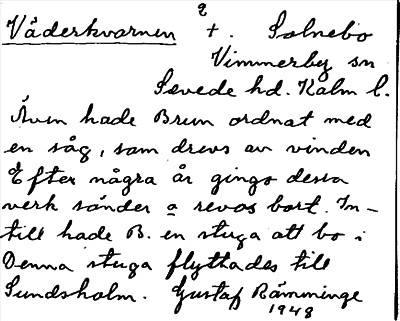 Väderkvarnen †. Solnebo
Vimmerby sn
Sevede hd. Kalm l.
Även hade Brun ordnat med
en såg, som drevs av vinden
Efter några år gingo dessa
verk sönder o revos bort. In-
till hade B. en stuga att bo i
Denna stuga flyttades till
Sundsholm. Gustaf Rämminge
1948